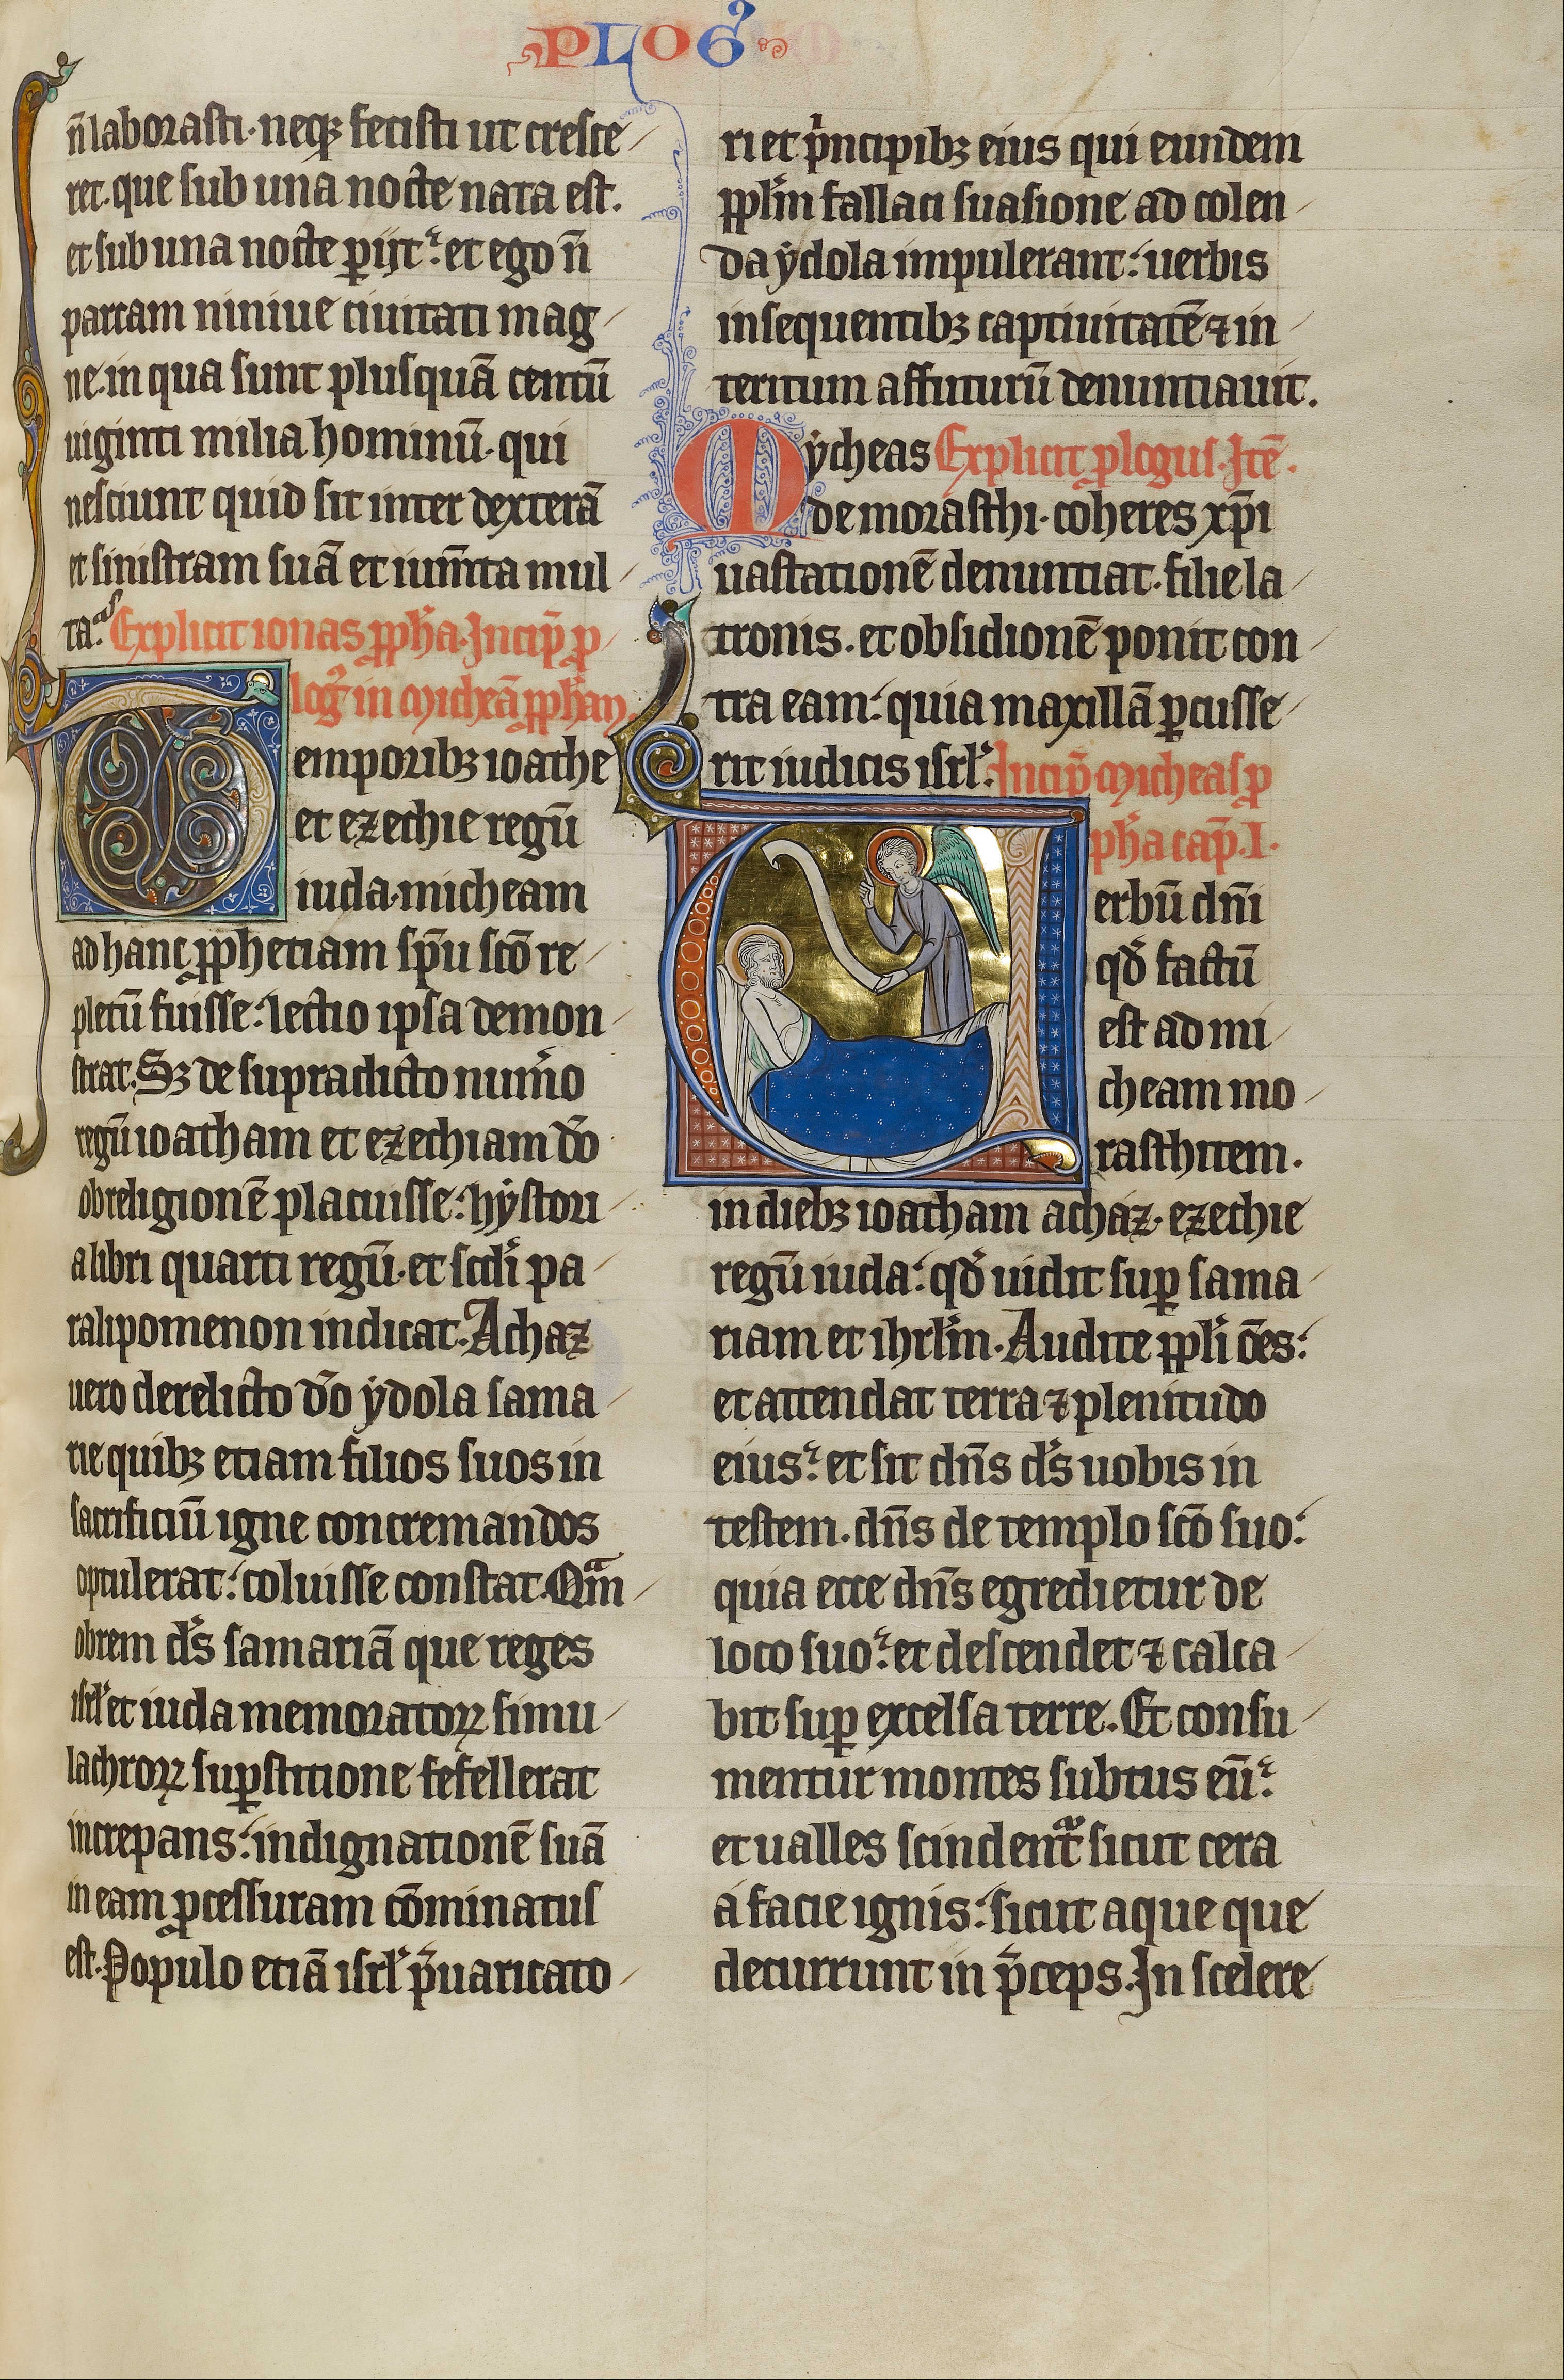 PLOG᷒
n̄ laborasti· neqꝫ fecisti ut cresce
ret. que sub una nocte nata est.
et sub una nocte ꝑijt: et ego n̄
parcam niniue ciuitati mag
ne. in qua sunt plusquā centū
uiginti milia hominū· qui
nesciunt quid sit inter dexterā
et sinistram suā et ium̄ta mul
ta: Explicit ionas ꝓph̄a. Incip̄ ꝓ
log᷒ in Micheā ꝓph̄am.
Temporibꝫ ioathe
et ezechie regū
iuda· micheam
ad hanc ꝓphetiam sp̄u sc̄o re
pletū fuisse: lectio ipsa demon
strat. Sꝫ de supradicto num̄o
regū ioatham et ezechiam dō
ob religionē placuisse: hẏstori
a libri quarti regū. et sc̄di pa
ralipomenon indicat. Achaz
uero derelicto dō ẏdola sama
rie quibꝫ etiam filios suos in
sacrificiū igne concremandos
optulerat: coluisse constat. Qͣm
obrem ds̄ samariā que reges
isrl̄ et iuda memoratoꝝ simu
lachroꝝ suꝑstitione fefellerat
increpans: indignationē suā
in eam ꝓcessuram cōminatus
est. Populo etiā isrl̄ p̄uaricato
ri et pͥncipibꝫ eius qui eundem
pplm̄ fallaci suasione ad colen
da ẏdola impulerant: uerbis
insequentibꝫ captiuitatē ⁊ in
teritum affuturū denuntiauit.
Mẏcheas Explicit ꝓlogus. Itē.
de morasthi· coheres xp̄i
uastationē denuntiat· filie la
tronis. et obsidionē ponit con
tra eam: quia maxillā ꝑcusse
rit iudicis isrl̄. Incip̄ Micheas ꝓ
ph̄a cap̄. I.
Uerbū dn̄i
qd̄ factū
est ad mi
cheam mo
rasthitem.
in diebꝫ ioatham achaz· ezechie
regū iuda: qd̄ uidit suꝑ sama
riam et ihrlm̄. Audite ppl̄i ōes:
et attendat terra ⁊ plenitudo
eius: et sit dn̄s ds̄ uobis in
testem. dn̄s de templo sc̄o suo:
quia ecce dn̄s egredietur de
loco suo: et descendet ⁊ calca
bit suꝑ excelsa terre. Et consu
mentur montes subtus eū:
et ualles scindentᷓ sicut cera
a facie ignis: sicut aque que
decurrunt in p̄ceps. In scelere